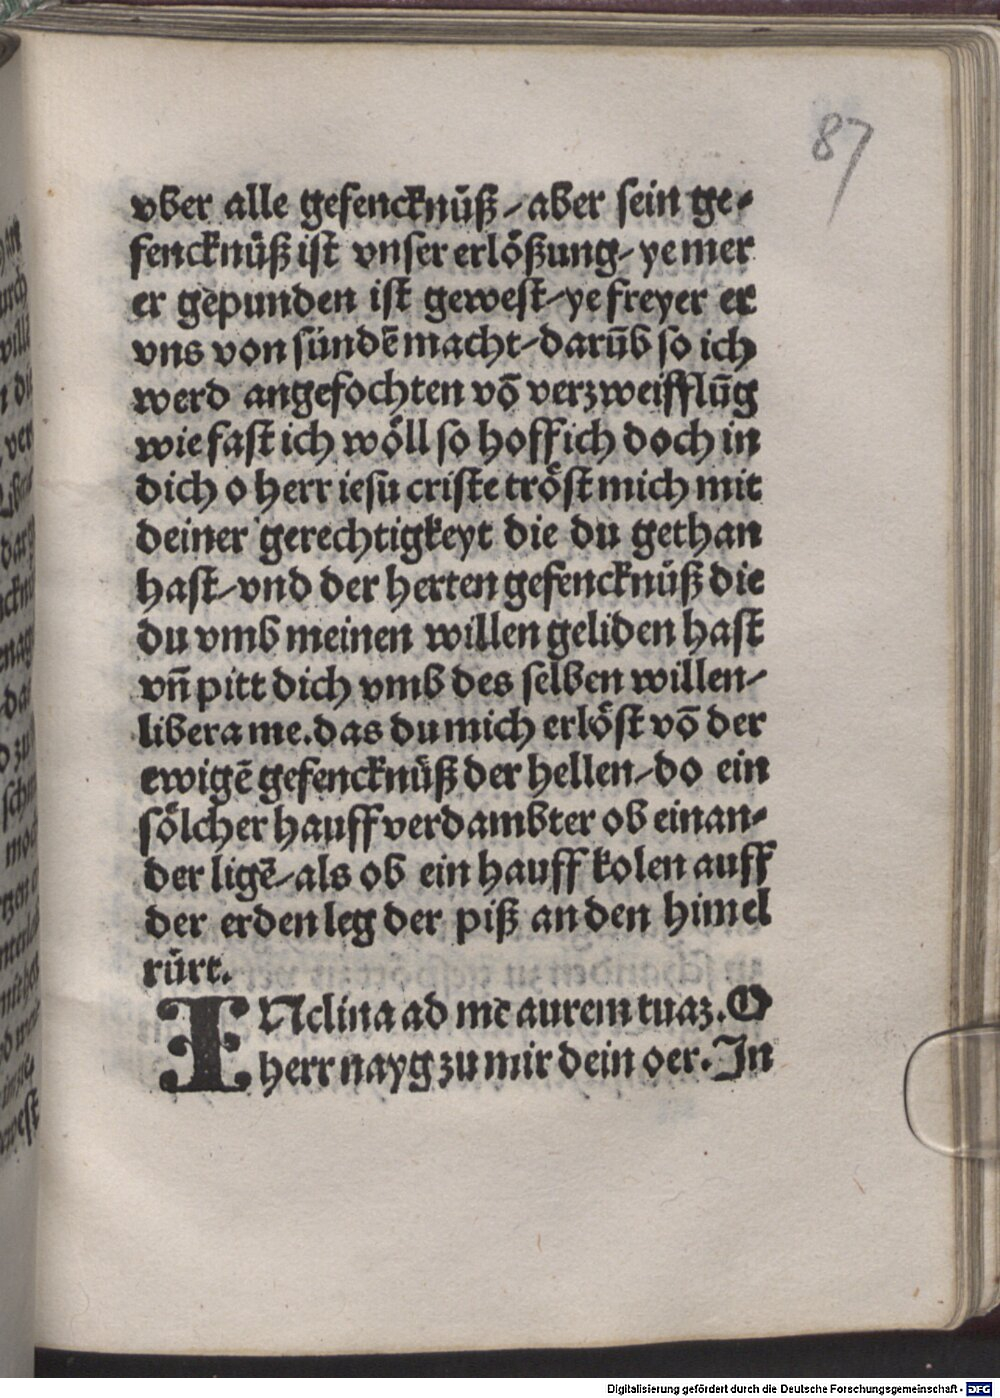 87
vber alle gefencknůß/aber sein ge-
fencknůß ist vnser erlößung/ye mer
er gepunden ist gewest/ye freyer er
vns von sündē macht/darūb so ich
werd angefochten vō verzweifflūg
wie fast ich wöll so hoff ich doch in
dich o herr iesu criste tröst mich mit
deiner gerechtigkeyt die du gethan
hast/vnd der herten gefencknůß die
du vmb meinen willen geliden hast
vñ pitt dich vmb des selben willen/
libera me.das du mich erlöst vō der
ewigē gefencknůß der hellen/do ein
sölcher hauff verdambter ob einan-
der ligē/als ob ein hauff kolen auff
der erden leg der piß an den himel
rürt.
INclina ad me aurem tuaz.O
herr nayg zu mir dein oer.In
Digitalisierung gefördert durch die Deutsche Forschungsgemeinschaft - DFG